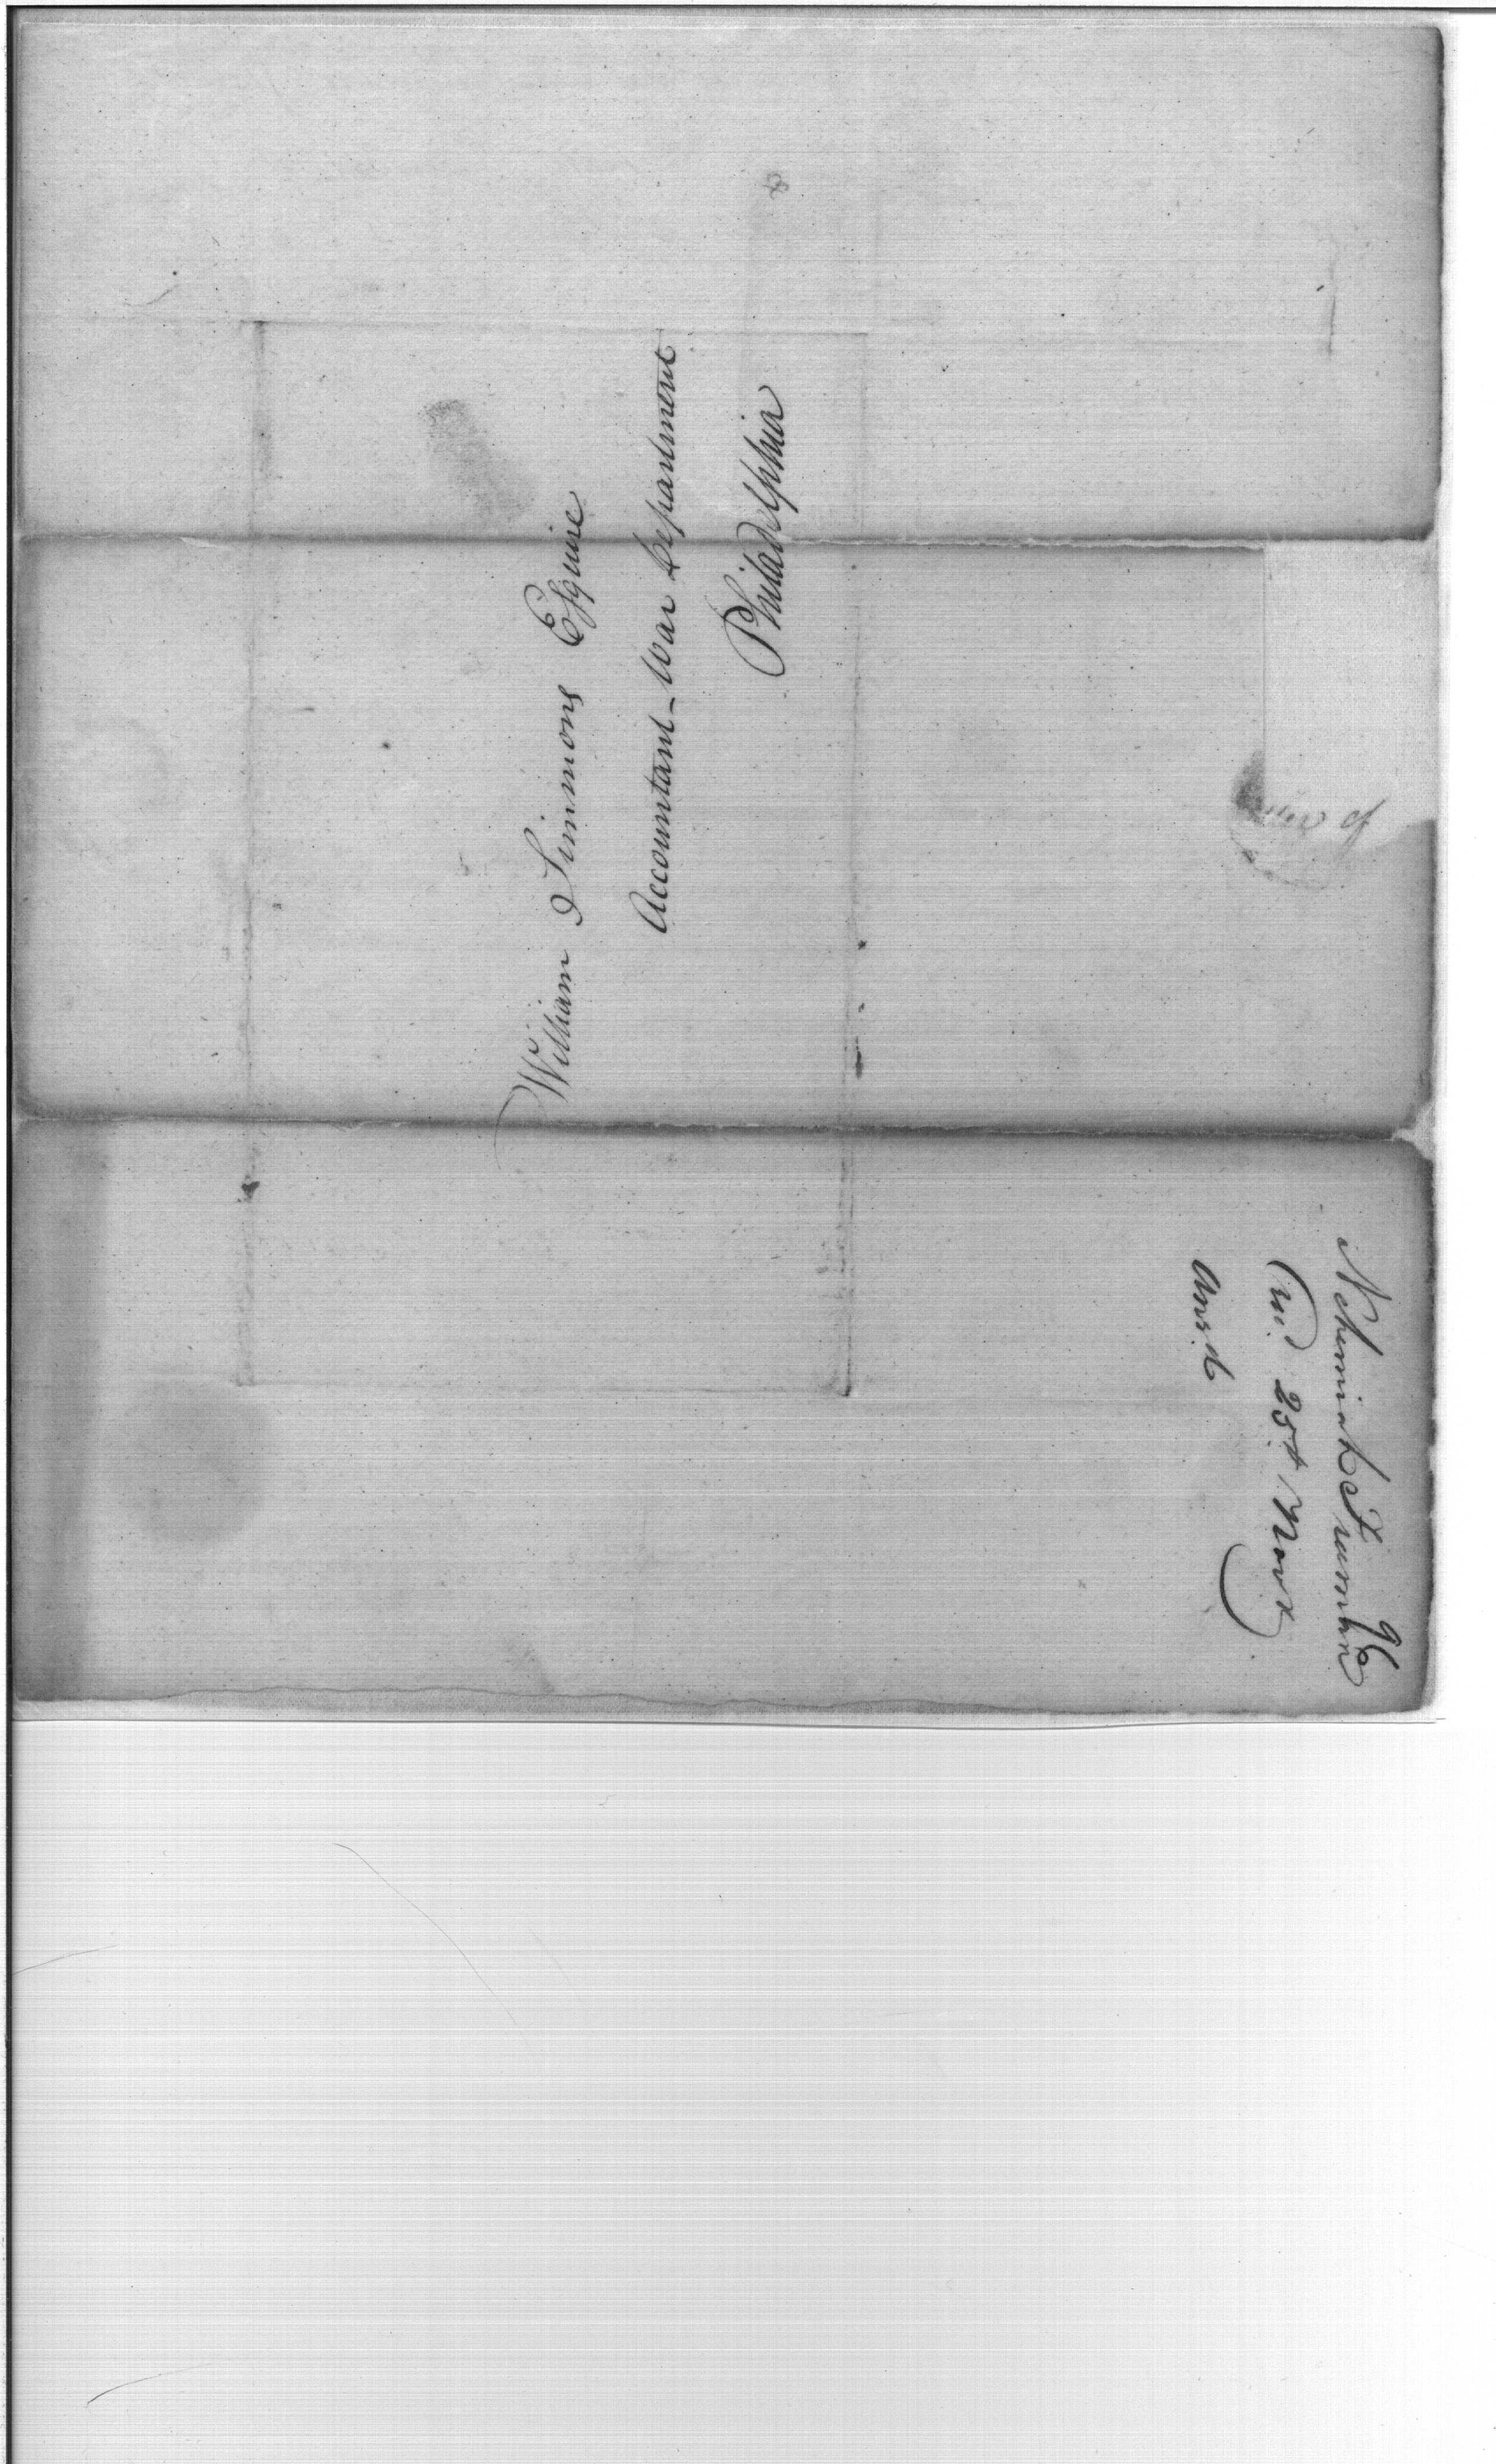 William Simmons Esquire
Accountant - War Department
Philadelphia
of
96
Nehemiah Freeman
25t Novr
Ansd